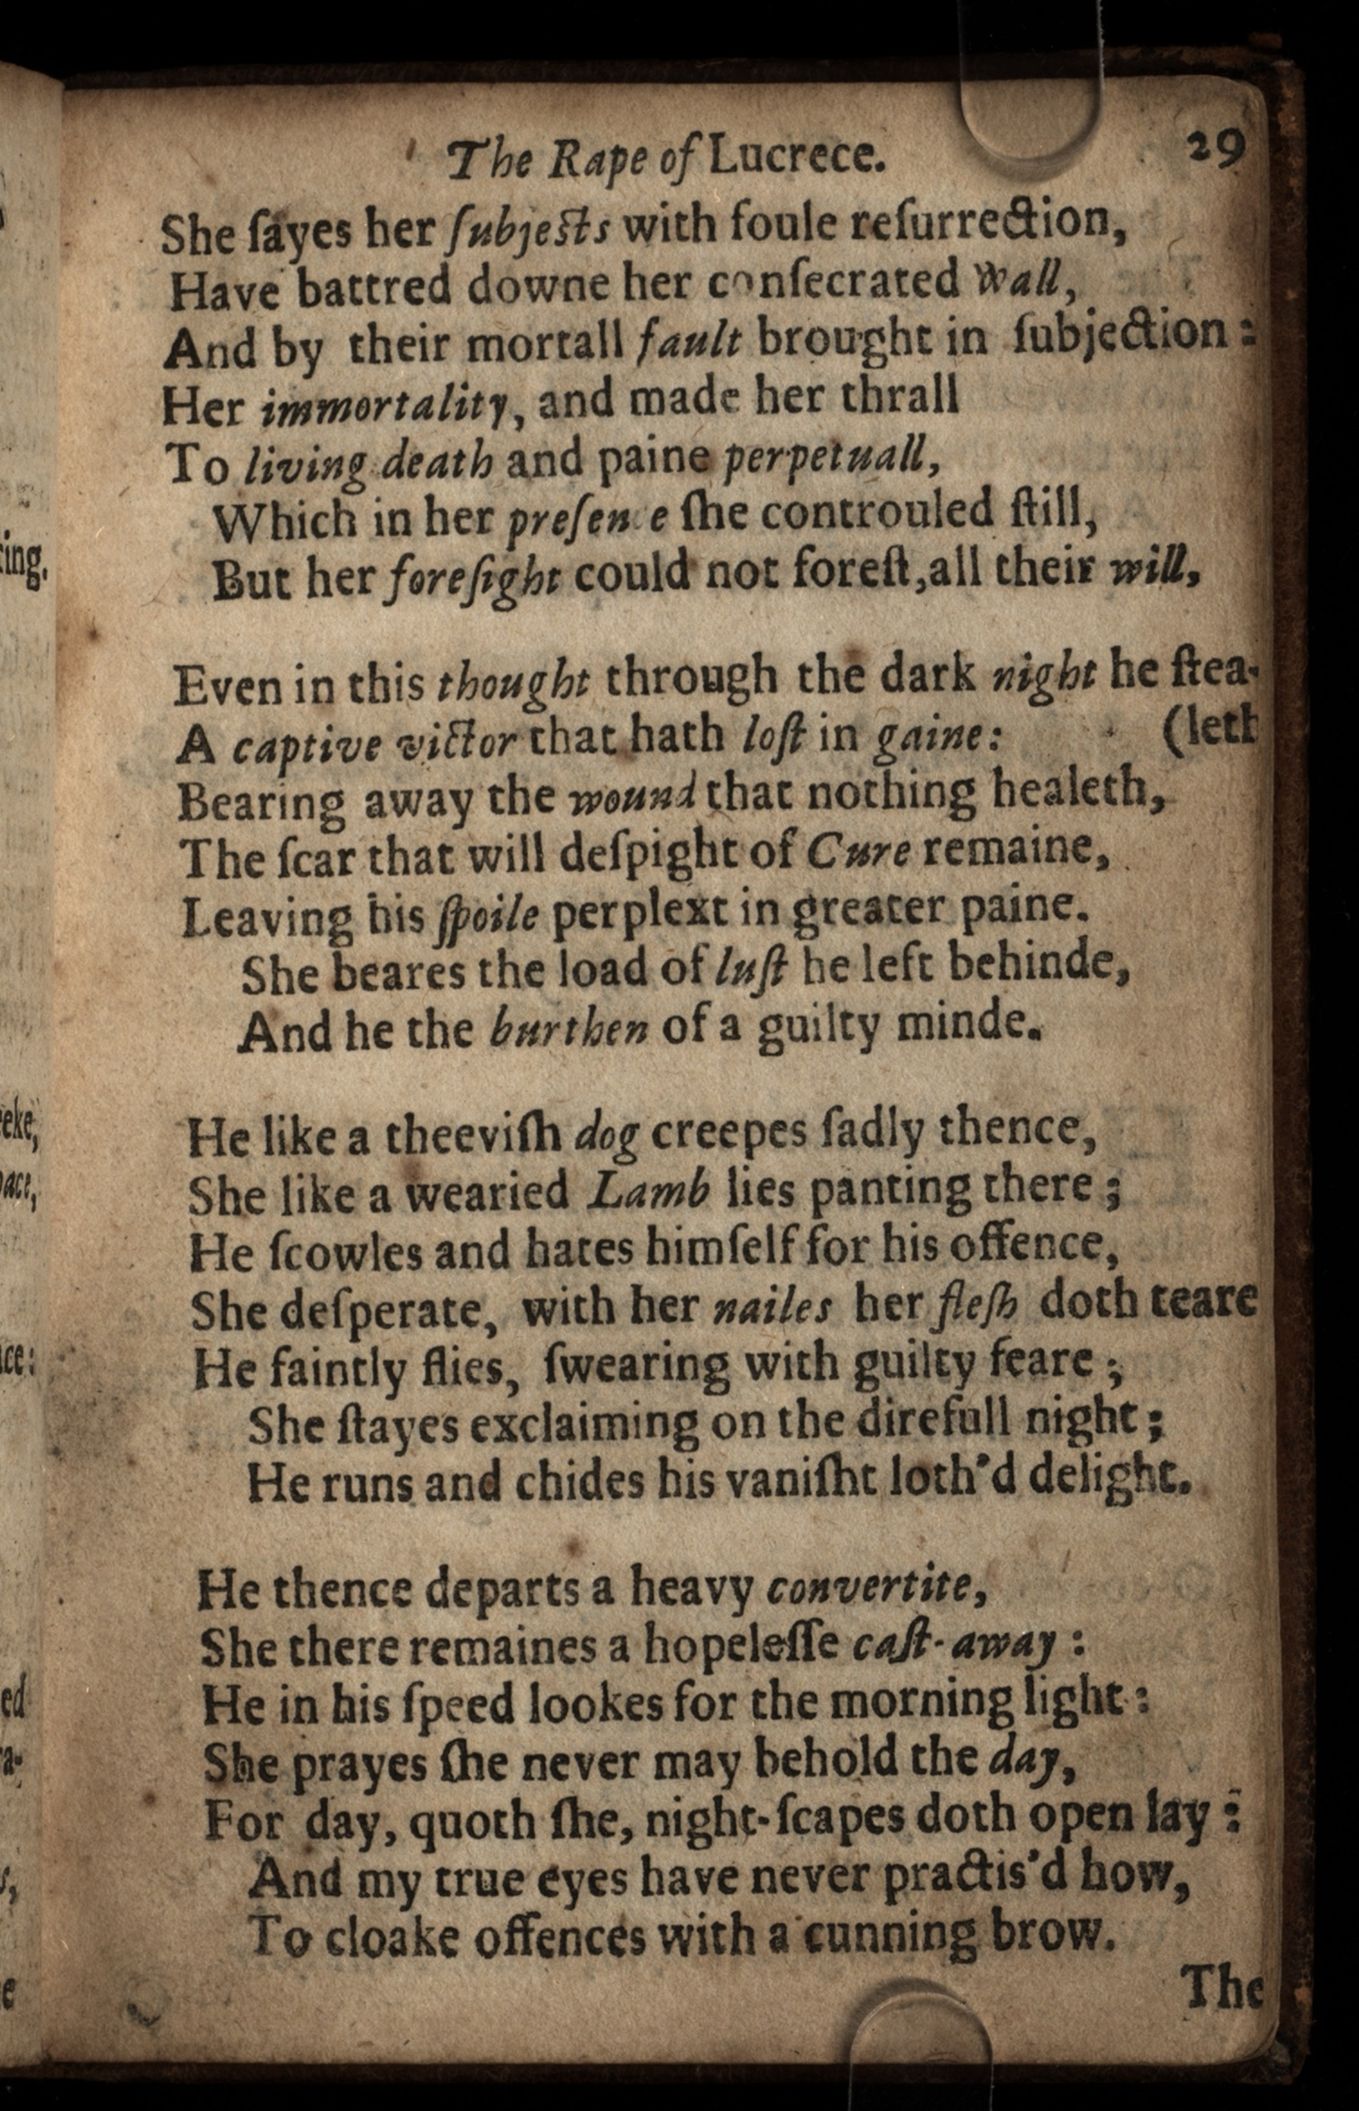 The Rape of Lucrece. 29
She ſayes her ſubjects with foule reſurrection,
Have battred downe her conſecrated Wall,
And by their mortall fault brought in ſubjection:
Her immortality, and made her thrall
To living death and paine perpetuall,
Which in her preſen e ſhe controuled ſtill,
But her foreſight could not foreſt,all their will,
Even in this thought through the dark night he ſtea-
A captive victor that hath loſt in gaine: (leth
Bearing away the wound that nothing healeth,
The ſcar that will deſpight of Cure remaine,
Leaving his ſpoile perplext in greater paine.
She beares the load of luſt he left behinde,
And he the burthen of a guilty minde.
He like a theeviſh dog creepes ſadly thence,
She like a wearied Lamb lies panting there;
He ſcowles and hates himſelf for his offence,
She deſperate, with her nailes her fleſh doth teare
He faintly flies, ſwearing with guilty feare;
She ſtayes exclaiming on the direfull night;
He runs and chides his vaniſht loth'd delight.
He thence departs a heavy convertite,
She there remaines a hopeleſſe caſt-away:
He in his ſpeed lookes for the morning light:
She prayes ſhe never may behold the day,
For day, quoth ſhe, night-ſcapes doth open lay:
And my true eyes have never practis'd how,
To cloake offences with a cunning brow.
The
ing.
eke,
ace,
ce:
ed
a-
s,
e